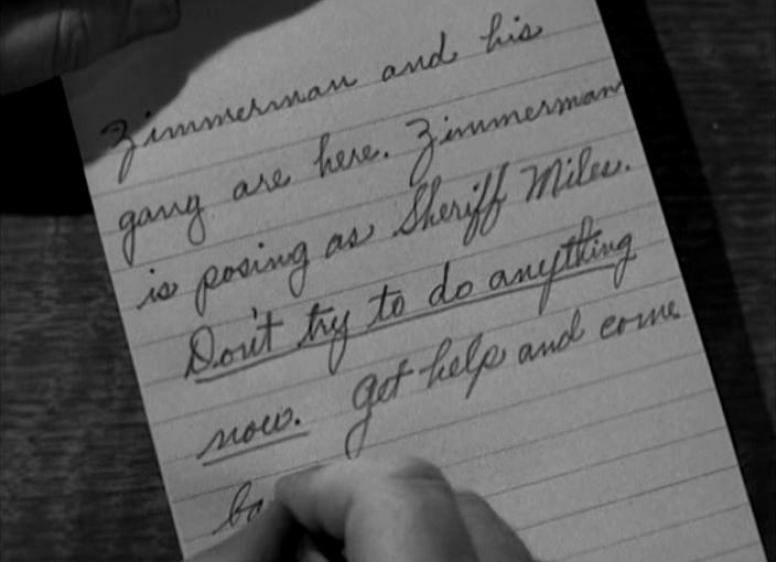 Zimmerman and his
gang are here. Zimmerman
is posing as Sheriff Miles.
Don't try to do anything
now. Get help and come
ba